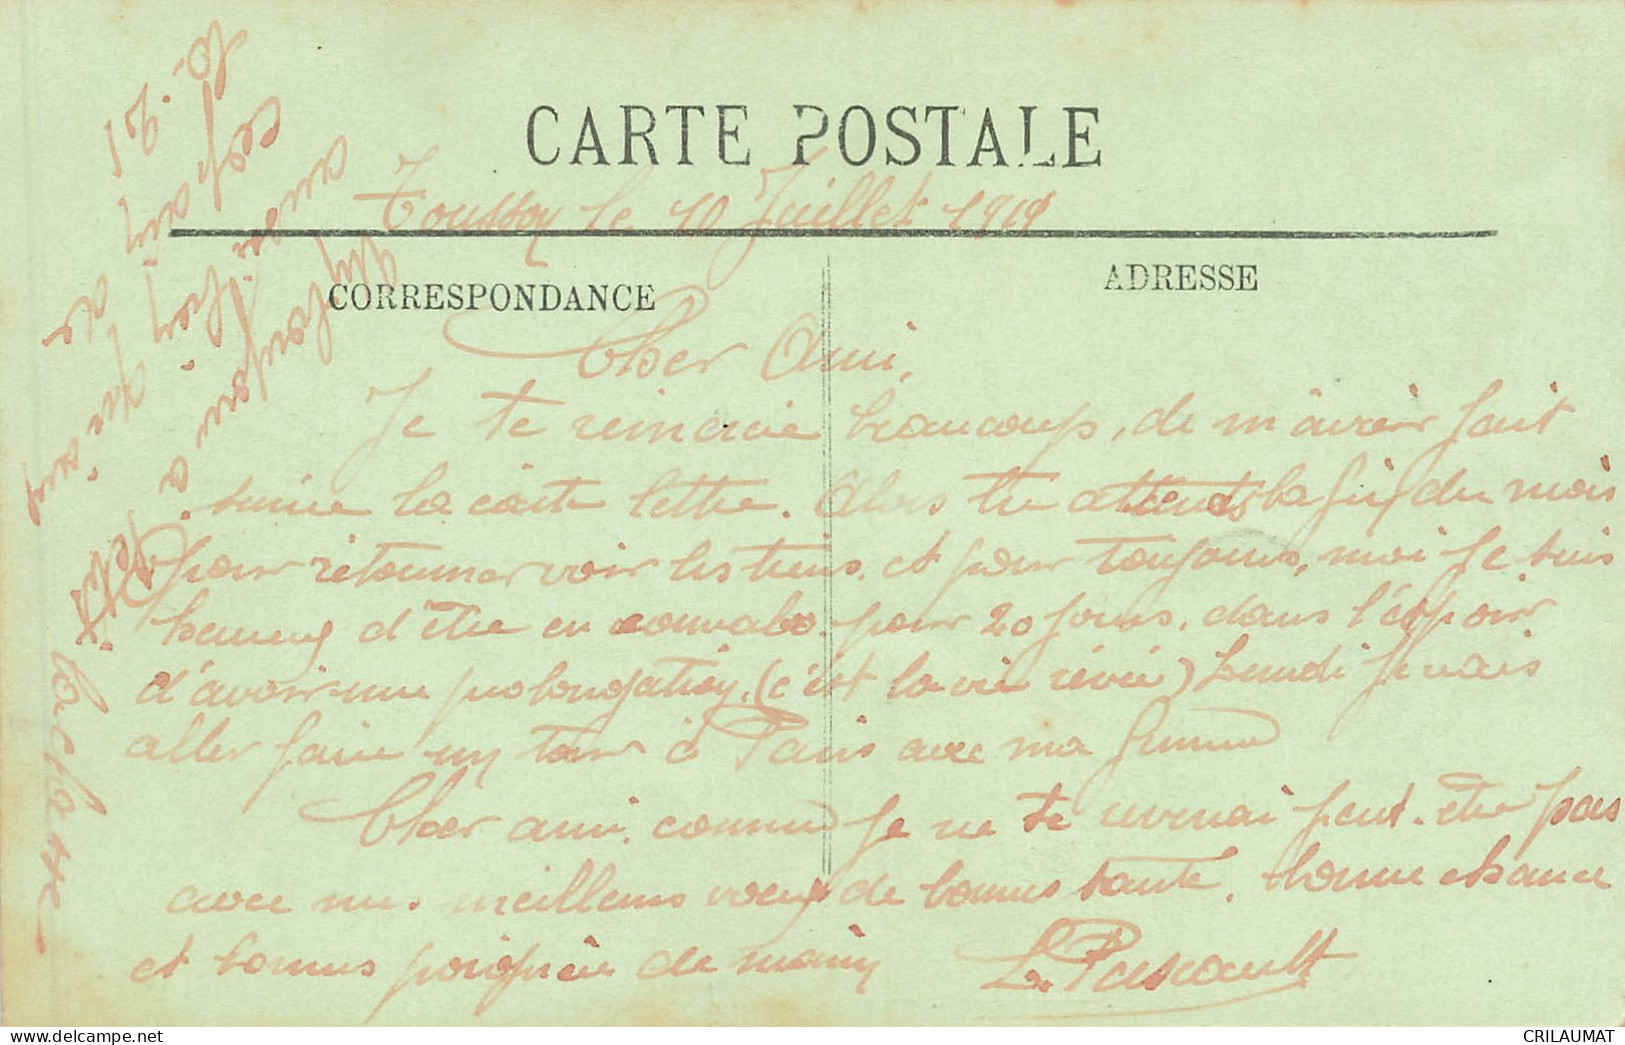 CARTE POSTALE
Toussoy le 10 Juillet 1919
CORRESPONDANCE
ADRESSE
Cher Ami,
Je te remercie beaucoup, de m'avoir fait
suivre la carte lettre. Alors tu attends la fin du mois
pour retourner voir les tiens, et pour toujours, moi je suis
heureux d'être en convalo. pour 20 jours, dans l'éspoir
d'avoir une prolongation, (c'est la vie rêvée) Lundi je vais
aller faire un tour à Paris avec ma femme
Cher ami, comme je ne te reverrai peut-être pas
avec mes meilleurs voeux de bonnes santé, bonne chance
et bonnes poignée de main L. Pascault
la classe
CRILAUMAT